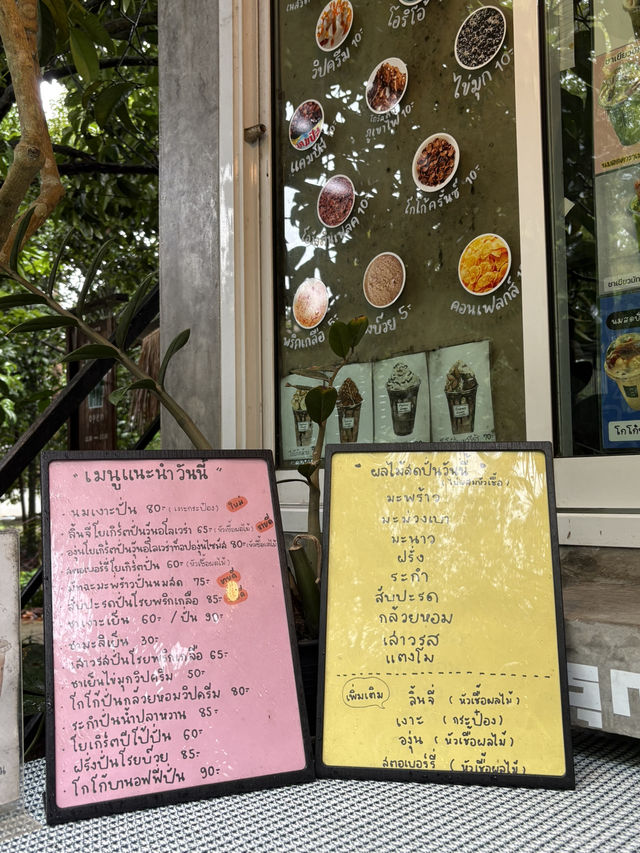 โอรีโอ้
วิปครีม 10.-
ไข่มุก 10.-
ภูเขาไฟ 10.-
แคมปัง 10.-
โกโก้ครันช์ 10.-
พริกเกลือ 5.-
บ๊วย 5.-
คอนเฟลกส์ 10.-
" เมนูแนะนำวันนี้ "
นมเงาะปั่น 80.- (เงาะกระป๋อง) ใหม่
ลิ้นจี่โยเกิร์ตปั่นวุ้นอโลเวรา 65.- (หัวเชื้อผลไม้)
องุ่นโยเกิร์ตปั่นวุ้นอโลเวราท็อปองุ่นไซมัส 80.- (หัวเชื้อผลไม้)
สตอเบอร์รี่โยเกิร์ตปั่น 60.- (หัวเชื้อผลไม้)
มัทฉะมะพร้าวปั่นนมสด 75.-
สับปะรดปั่นโรยพริกเกลือ 85.-
ชาเงาะเย็น 60.- / ปั่น 90.-
ชามะลิเย็น 30.-
เสาวรสปั่นโรยพริกเกลือ 65.-
ชาเย็นไข่มุกวิปครีม 50.-
โกโก้ปั่นกล้วยหอมวิปครีม 80.-
ระกำปั่นน้ำปลาหวาน 85.-
โยเกิร์ตบีโป้ปั่น 60.-
ฝรั่งปั่นโรยบ๊วย 85.-
โกโก้บานอฟฟี่ปั่น 90.-
" ผลไม้สดปั่นวันนี้ "
(ไม่ผสมหัวเชื้อ)
มะพร้าว
มะม่วงเบา
มะนาว
ฝรั่ง
ระกำ
สับปะรด
กล้วยหอม
เสาวรส
แตงโม
เพิ่มเติม
ลิ้นจี่ (หัวเชื้อผลไม้)
เงาะ (กระป๋อง)
องุ่น (หัวเชื้อผลไม้)
สตอเบอร์รี่ (หัวเชื้อผลไม้)